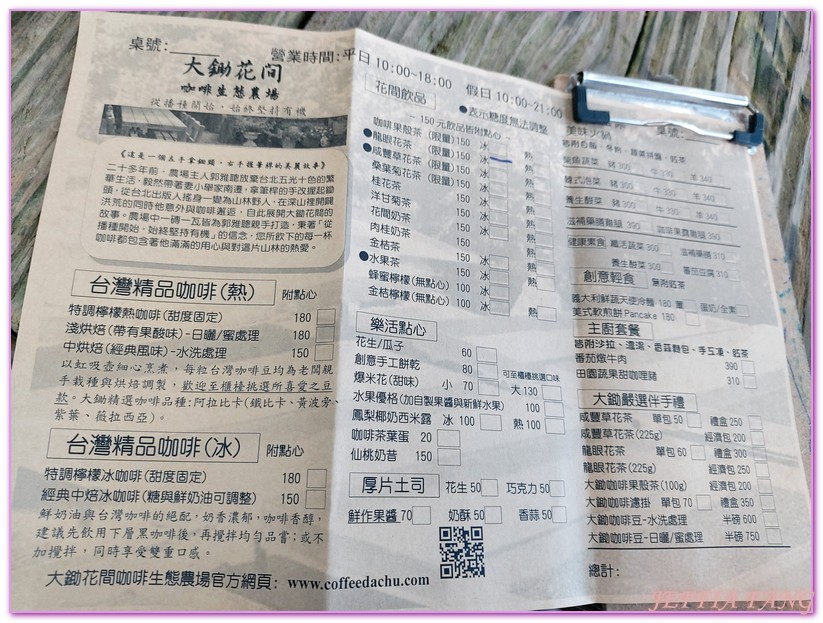 桌號:
營業時間:平日 10:00~18:00 假日 10:00~21:00
大鋤花间
咖啡生態農場
從播種開始，始終堅持有機
《這是一個左手拿鋤頭，右手握筆桿的美麗故事》
二十多年前，農場主人郭雅聰放棄台北五光十色的繁
華生活，毅然帶著妻小舉家南遷，拿筆桿的手改握起鋤
頭，從台北出版人搖身一變為山林野人，在深山裡開闢
洪荒的同時他意外與咖啡邂逅，自此展開大鋤花間的
故事。農場中一磚一瓦皆為郭雅聰親手打造，秉著「從
播種開始，始終堅持有機」的信念，您所飲下的每一杯
咖啡都包含著他滿滿的用心與對這片山林的熱愛。
台灣精品咖啡(熱) 附點心
特調檸檬熱咖啡(甜度固定) 180
淺烘焙(帶有果酸味)-日曬/蜜處理 180
中烘焙(經典風味)-水洗處理 150
以虹吸壺細心烹煮，每粒台灣咖啡豆均為老闆親
手栽種與烘焙調製，歡迎至櫃檯挑選所喜愛之豆
款。大鋤精選咖啡品種:阿拉比卡(鐵比卡、黃波旁、
紫葉、薇拉西亞)。
台灣精品咖啡(冰) 附點心
特調檸檬冰咖啡(甜度固定) 180
經典中焙冰咖啡(糖與鮮奶油可調整) 150
鮮奶油與台灣咖啡的絕配，奶香濃郁，咖啡香醇，
建議先飲用下層黑咖啡後，再攪拌均勻品嘗;或不
加攪拌，同時享受雙重口感。
大鋤花間咖啡生態農場官方網頁: www.coffeedachu.com
花間飲品
●表示糖度無法調整
150元飲品皆附點心
咖啡果殼茶(限量)150 冰 熱
●龍眼花茶(限量)150 冰 熱
●咸豐草花茶(限量)150 冰 熱
桑葉菊花茶(限量)150 冰 熱
桂花茶 150 冰 熱
洋甘菊茶 150 冰 熱
花間奶茶 150 冰 熱
肉桂奶茶 150 冰 熱
金桔茶 150 冰 熱
●水果茶 150 冰 熱
蜂蜜檸檬(無點心) 100 冰 熱
金桔檸檬(無點心) 100 冰 熱
樂活點心
花生/瓜子 60
創意手工餅乾 80 可至櫃檯挑選口味
爆米花(甜味) 小 70 大 130
水果優格(加自製果醬與新鮮水果) 100
鳳梨椰奶西米露 冰 100 熱 100
咖啡茶葉蛋 20
仙桃奶昔 150
厚片土司 花生 50 巧克力 50
鮮作果醬 70 奶酥 50 香蒜 50
美味火鍋 桌號:
豬 300 牛 330 羊 340
韓式泡菜 豬 300 牛 330 羊 340
養生酸菜 豬 300 牛 330 羊 340
滋補藥膳雞腿 390 咖啡果露雞腿 390
健康素食 纖活蔬菜 300 滋補藥膳 310
養生酸菜 300 番茄豆腐 310
創意輕食 無附飲料
義大利鮮蔬天使冷麵 180 葷 蛋奶/全素
美式軟煎餅 Pancake 180
主廚套餐
番茄燉牛肉 390
田園蔬果甜咖哩豬 310
大鋤嚴選伴手禮
咸豐草花茶 單包 50 禮盒 250
咸豐草花茶(225g) 經濟包 200
龍眼花茶 單包 60 禮盒 300
龍眼花茶(225g) 經濟包 250
大鋤咖啡果殼茶(100g) 經濟包 200
大鋤咖啡濾掛 單包 70 禮盒 350
大鋤咖啡豆-水洗處理 半磅 600
大鋤咖啡豆-日曬/蜜處理 半磅 750
總計: